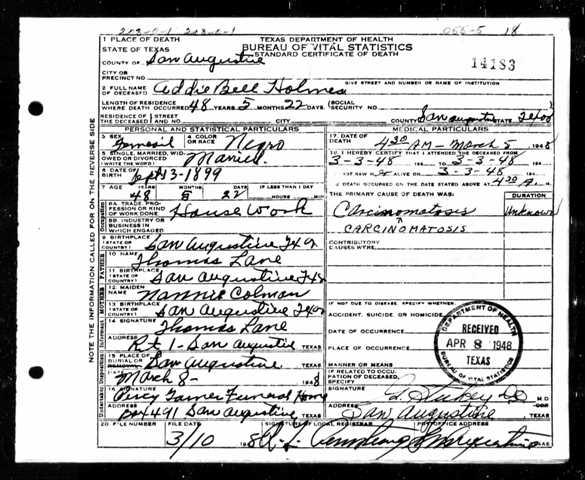 213-0-1 213-0-1 055-5 18
TEXAS DEPARTMENT OF HEALTH
BUREAU OF VITAL STATISTICS
STANDARD CERTIFICATE OF DEATH
14183
1 PLACE OF DEATH
STATE OF TEXAS
COUNTY OF San Augustine
CITY OR
PRECINCT NO.
GIVE STREET AND NUMBER OR NAME OF INSTITUTION
2. FULL NAME
OF DECEASED Addie Bell Holmes
LENGTH OF RESIDENCE
WHERE DEATH OCCURRED 48 YEARS 5 MONTHS 22 DAYS
SOCIAL
SECURITY NO.
RESIDENCE OF
THE DECEASED
STREET
AND NO.
CITY
COUNTY San Augustine
PERSONAL AND STATISTICAL PARTICULARS
3. SEX
4. COLOR
OR RACE Negro
5. SINGLE, MARRIED, WID-
OWED OR DIVORCED
(WRITE THE WORD) Married
6. DATE OF
BIRTH Sept 13-1899
7. AGE YEARS MONTHS DAYS IF LESS THAN 1 DAY
48 5 22 HOURS MIN.
8A. TRADE, PRO-
FESSION OR KIND
OF WORK DONE House Work
8B. INDUSTRY OR
BUSINESS IN
WHICH ENGAGED
9. BIRTHPLACE
(STATE OR
COUNTRY) San Augustine
10. NAME
Thomas Lane
11. BIRTHPLACE
(STATE OR
COUNTRY) San Augustine
12. MAIDEN
NAME Nannie Colman
13. BIRTHPLACE
(STATE OR
COUNTRY) San Augustine
14. SIGNATURE
Thomas Lane
ADDRESS
Rt 1- San Augustine TEXAS
15. PLACE OF
BURIAL
San Augustine TEXAS
March 8- 1948
16. SIGNATURE
Funeral Home
ADDRESS
Box 491 San Augustine TEXAS
MEDICAL PARTICULARS
17. DATE OF
DEATH 4:30 AM-March 5 1948
18. I HEREBY CERTIFY THAT I ATTENDED THE DECEASED FROM
3-3-48 3-3-48
I LAST SAW H ALIVE ON 3-3-48
DEATH OCCURRED ON THE DATE STATED ABOVE AT 4:30 A.M.
THE PRIMARY CAUSE OF DEATH WAS:
DURATION
Carcinomatosis Unknown
CARCINOMATOSIS
CONTRIBUTORY
CAUSES WERE
IF NOT DUE TO DISEASE, SPECIFY WHETHER:
ACCIDENT, SUICIDE OR HOMICIDE
DATE OF OCCURRENCE
PLACE OF OCCURRENCE
MANNER OR MEANS
IF RELATED TO OCCU-
PATION OF DECEASED,
SPECIFY
SIGNATURE
M.D.
ADDRESS
San Augustine TEXAS
DEPARTMENT OF HEALTH
RECEIVED
APR 8 1948
TEXAS
BUREAU OF VITAL STATISTICS
20. FILE NUMBER FILE DATE SIGNATURE OF LOCAL REGISTRAR POST OFFICE ADDRESS
3/10 1948 TEXAS
NOTE THE INFORMATION CALLED FOR ON THE REVERSE SIDE